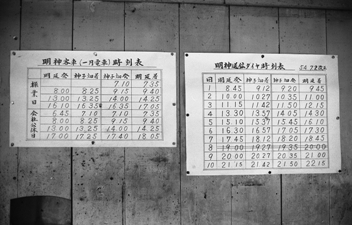 明神客車(一円電車)時刻表
明延発 神子畑着 神子畑発 明延着
7.10 7.35
操業日 8.00 8.25 9.15 9.40
13.00 13.25 14.00 14.25
16.10 16.35 16.35 17.05
会社公休日 6.45 7.10 7.10 7.35
8.00 8.25 9.15 9.40
13.00 13.25 14.00 14.25
17.00 17.25 17.40 18.05
明神運鉱ダイヤ時刻表
明延発 神子畑着 神子畑発 明延着
1 8.45 9.12 9.20 9.45
2 10.00 10.27 10.35 11.00
3 11.15 11.42 11.50 12.15
4 13.30 13.57 14.05 14.30
5 15.10 15.37 15.45 16.10
6 16.30 16.57 17.05 17.30
7 17.45 18.12 18.20 18.45
8 19.00 19.27 19.35 20.00
9 20.00 20.27 20.35 21.00
10 21.15 21.42 21.50 22.15